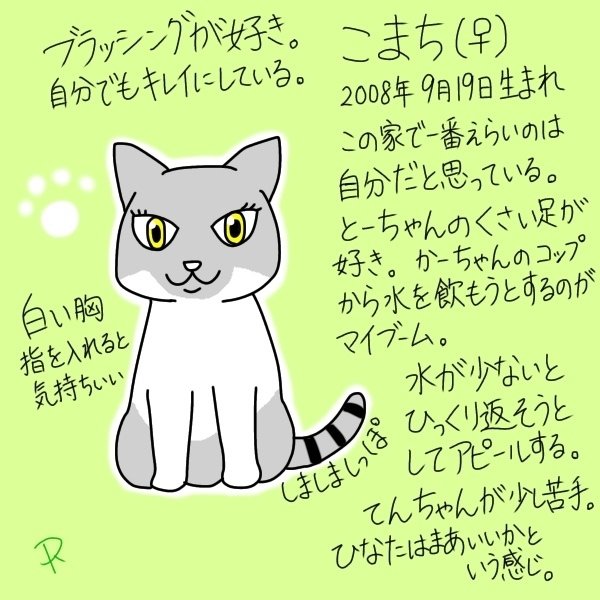 ブラッシングが好き。
自分でもキレイにしている。
こまち(♀)
2008年9月19日生まれ
この家で一番えらいのは
自分だと思っている。
とーちゃんのくさい足が
好き。かーちゃんのコップ
から水を飲もうとするのが
マイブーム。
水が少ないと
ひっくり返そうと
してアピールする。
てんちゃんが少し苦手。
ひなたはまあいいかと
いう感じ。
白い胸
指を入れると
気持ちいい
しましましっぽ
R